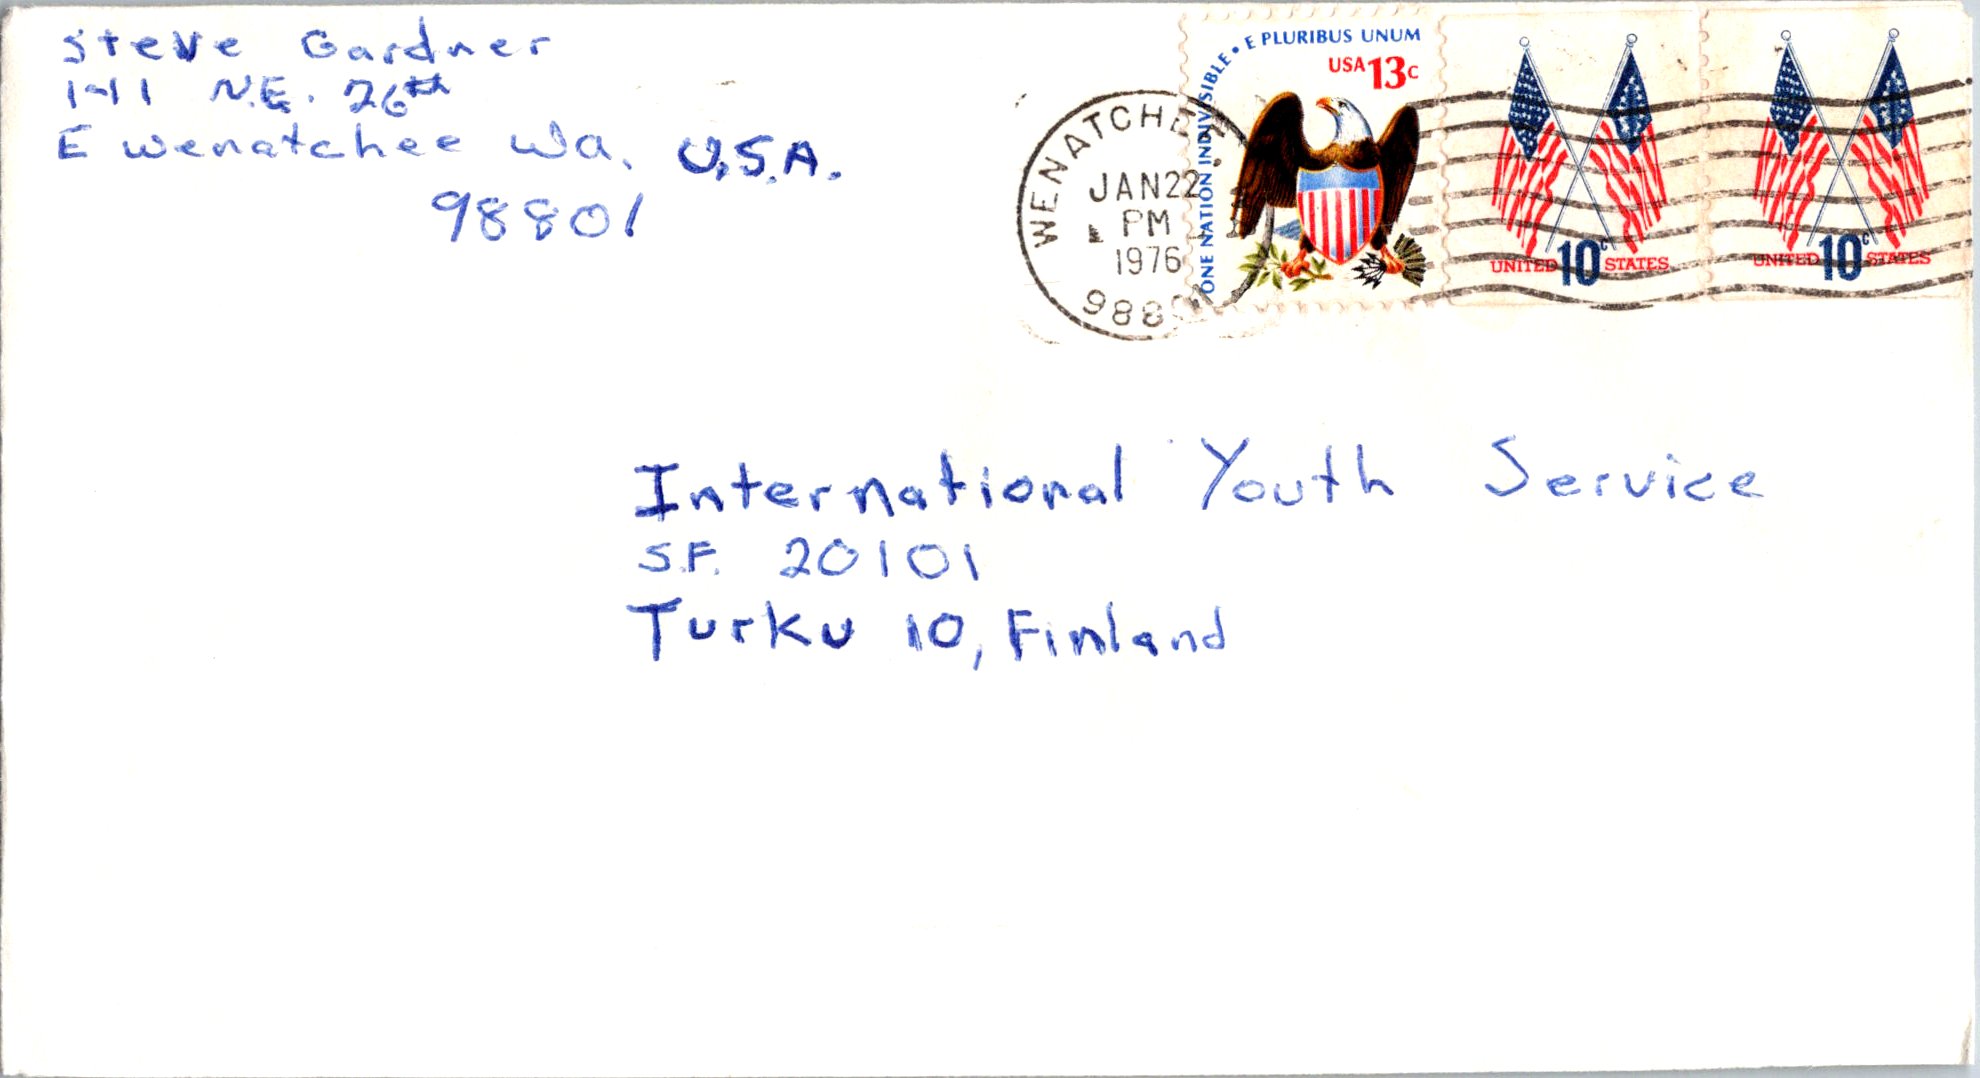 Steve Gardner
1411 N.E. 26th
E Wenatchee Wa. U.S.A.
98801
WENATCHEE,
JAN 22
PM
1976
9880
ONE NATION INDIVISIBLE • E PLURIBUS UNUM
USA 13c
UNITED 10c STATES
UNITED 10c STATES
International Youth Service
S.F. 20101
Turku 10, Finland